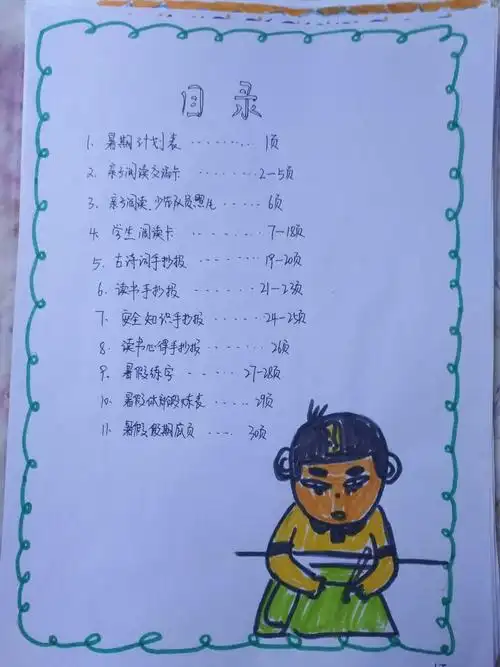 目 录
1. 暑期计划表 ········· 1页
2. 亲子阅读交流卡 ········ 2—5页
3. 亲子阅读、少先队员照片 ····· 6页
4. 学生阅读卡 ········ 7—18页
5. 古诗词手抄报 ······· 19—20页
6. 读书手抄报 ······ 21—23页
7. 安全知识手抄报 ····· 24—25页
8. 读书心得手抄报 ····· 26页
9. 暑假练字 ····· 27—28页
10. 暑假体育锻炼表 ····· 29页
11. 暑假假期 ···· 30页